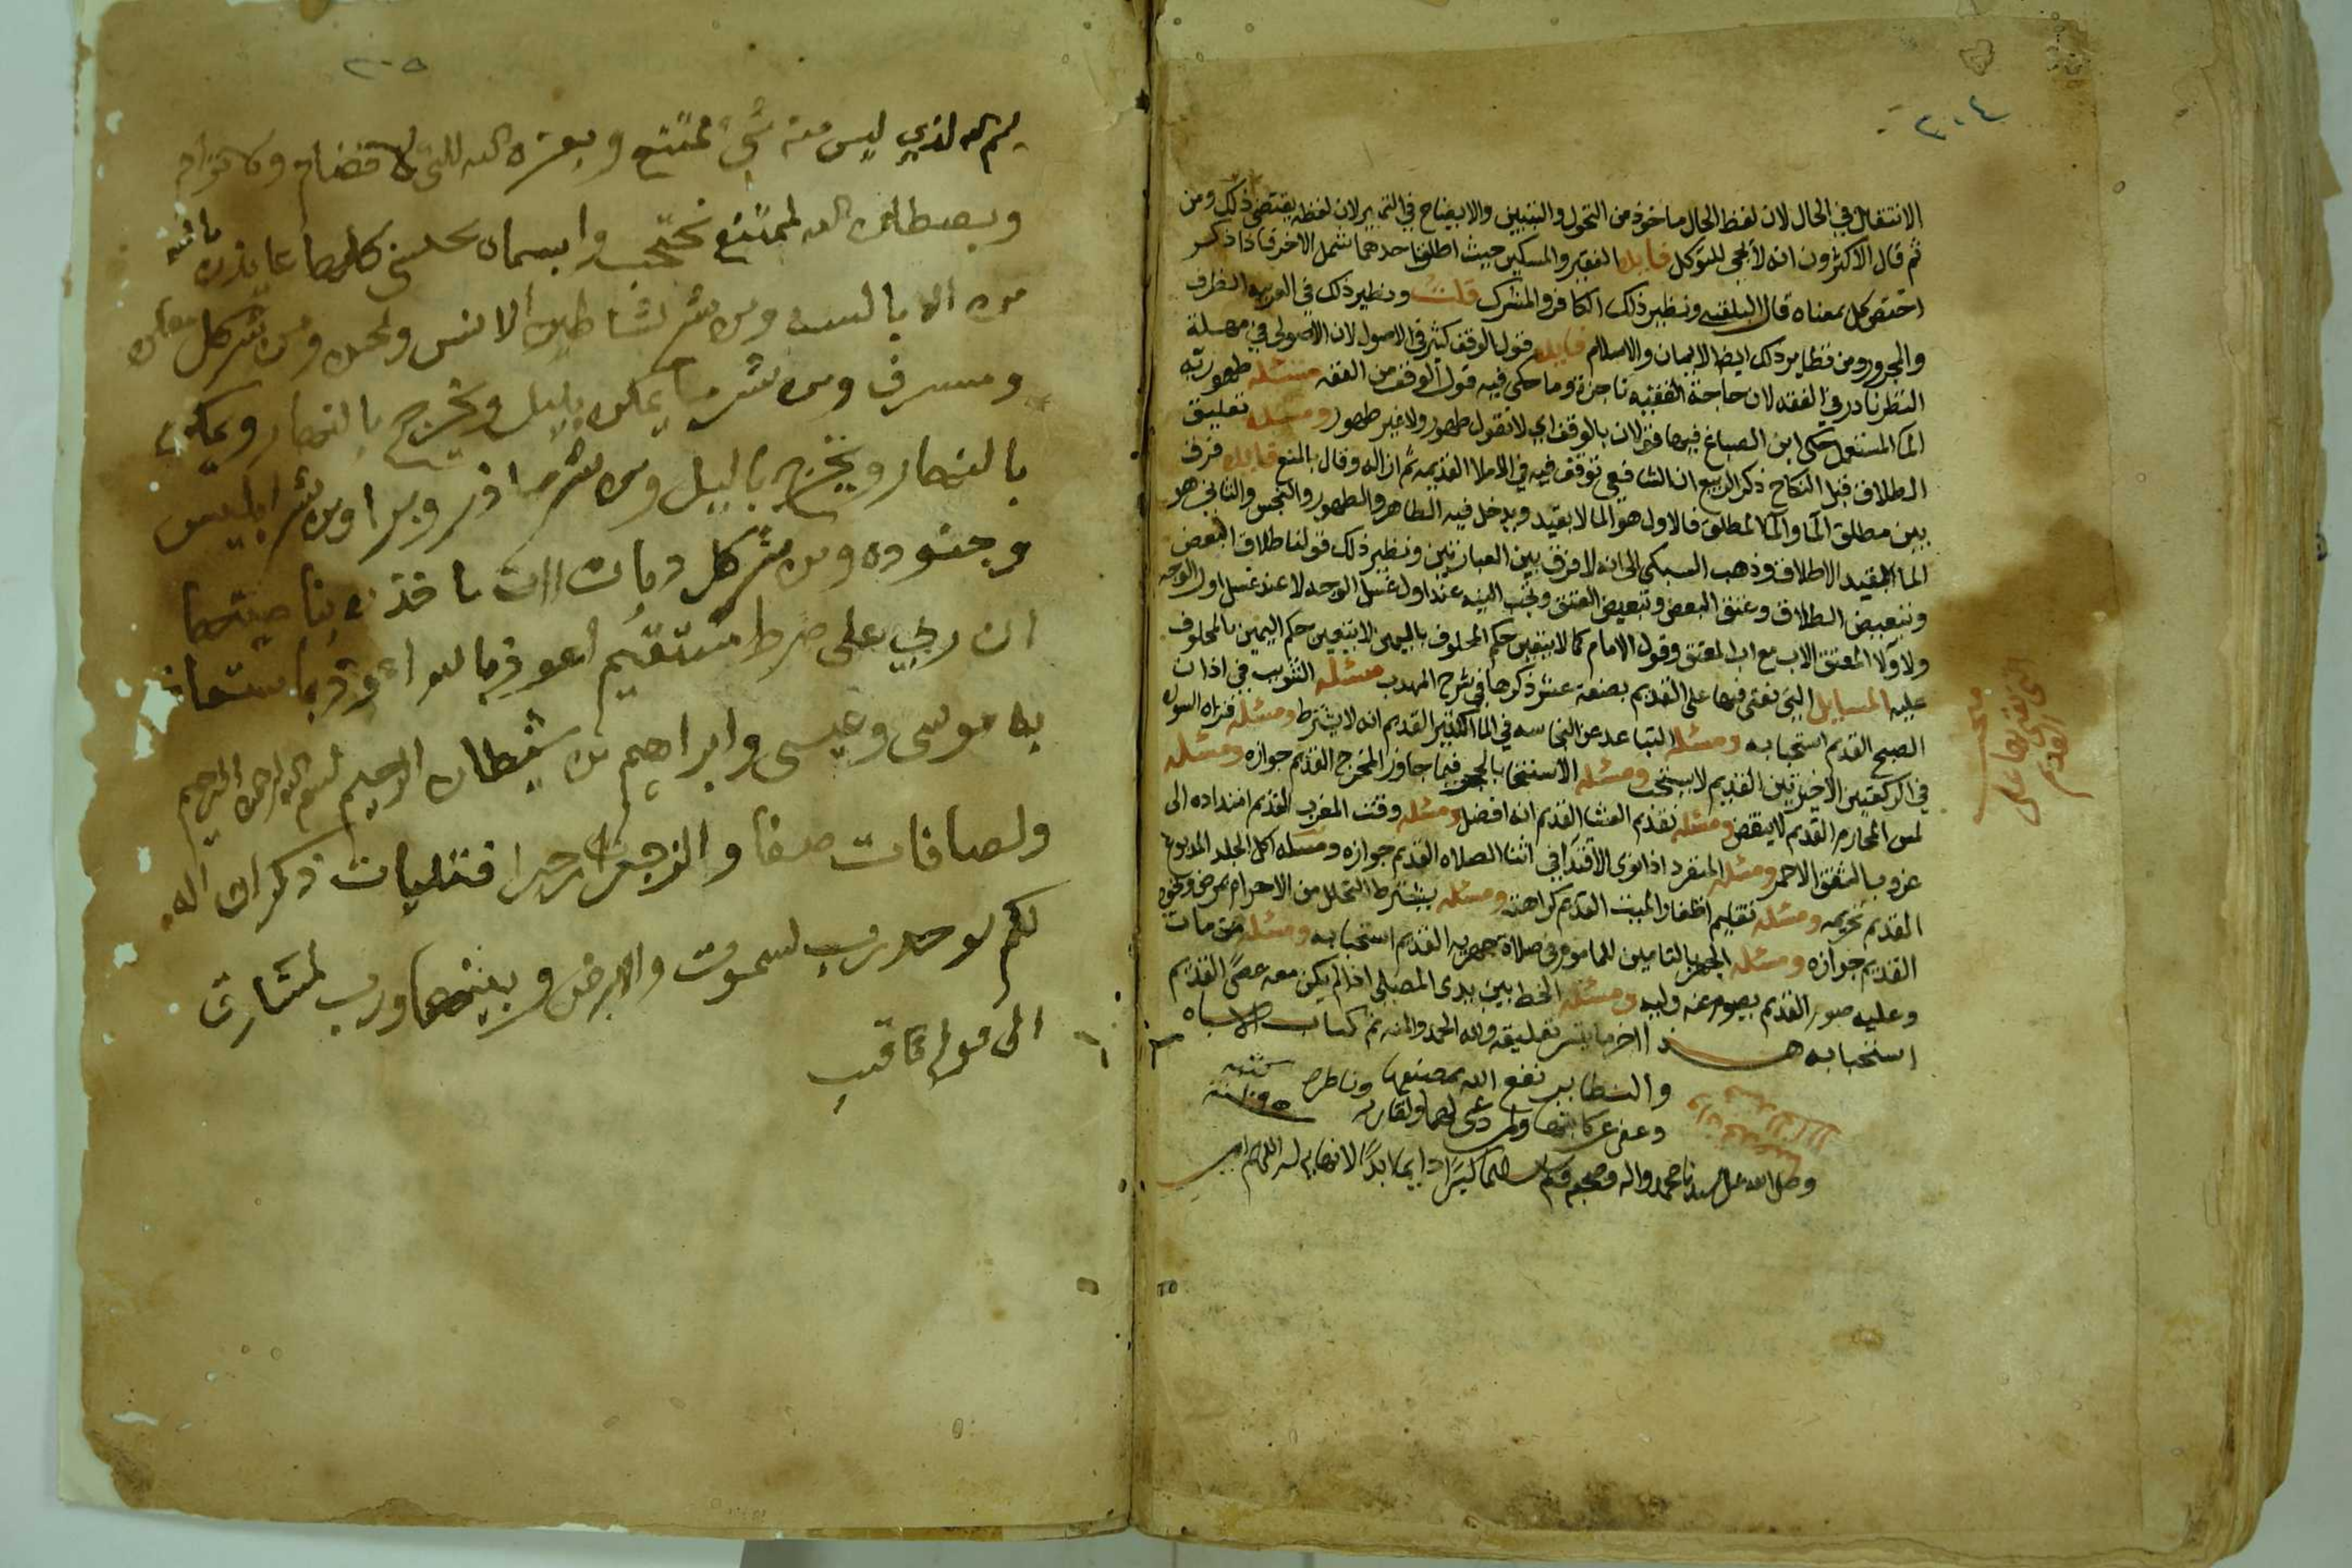 ٢٠٤
الانتقال في الحال لان لفظ الحال ماخوذ من التحول والتبيين والايضاح في التمييز لان لفظه يقتضي ذلك ومن
ثم قال الاكثرون انه لا يجي للتوكل فايده الفقير والمسكين حيث اطلق احدهما شمل الاخر فاذا ذكر
اختص كل بمعناه قال البلقيني ونظير ذلك الكافر والمشرك قلت ونظير ذلك في العربيه الظرف
والمجرور ومن نظاير ذلك ايضا الايمان والاسلام فايده قول الوقف كثير في الاصول لان الاصولي في مهلة
النظر نادر في الفقه لان حاجة الفقيه ناجزة وما حكي فيه قول الوقف من الفقه مسئله طهورية
الما المستعمل حكى ابن الصباغ فيها قولان بالوقف اي لا نقول طهور ولا غير طهور ومسئله تعليق
الطلاق قبل النكاح ذكر الربيع ان الشافعي توقف فيه في الاملا القديمه ثم ازاله وقال بالمنع فايده فرق
بين مطلق الما والما المطلق فالاول هو الما لا بقيد ويدخل فيه الطاهر والطهور والنجس والثاني هو
الما المقيد الاطلاق وذهب السبكي الى انه لا فرق بين العبارتين ونظير ذلك قولنا طلاق البعض
وتبعيض الطلاق وعتق البعض وتبعيض العتق وتجب النيه عند اول غسل الوجه لا عند غسل اول الوجه
ولا ولا المعتق الاب مع اب المعتق وقول الامام كما لا يتغير حكم المحلوف باليمين لا يتغير حكم اليمين بالمحلوف
عليه المسايل التي نفتى فيها على القديم بضعة عشر ذكرها في شرح المهذب مسئله التثويب في اذان
الصبح القديم استحبابه ومسئله التباعد عن النجاسه في الما الكثير القديم انه لا يشترط ومسئله قراه السوره
في الركعتين الاخيرتين القديم لا يستحب ومسئله الاستنجا بالحجر فيما جاوز المخرج القديم جوازه ومسئله
لمس المحارم القديم لا ينقض ومسئله تقديم العشا القديم انه افضل ومسئله وقت المغرب القديم امتداده الى
غروب الشفق الاحمر ومسئله المنفرد اذا نوى الاقتدا في اثنا الصلاه القديم جوازه ومسئله اكل الجلد المدبوغ
القديم تحريمه ومسئله تقليم اظفار الميت القديم كراهته ومسئله يشترط التحلل من الاحرام بمرض ونحوه
القديم جوازه ومسئله الجهر بالتامين للماموم في صلاة جهريه القديم استحبابه ومسئله من مات
وعليه صوم القديم يصوم عنه وليه ومسئله الخط بين يدى المصلى اذا لم يكن معه عصى القديم
استحبابه هـذا اخر ما يسر تعليقه ولله الحمد والمنه تم كتاب الاشباه
والنظاير نفع الله بمصنفها وناظره
وعفى عن كاتبها ولمن دعى لهما ولقاريه
وصلى الله على سيدنا محمد واله وصحبه وسلم تسليما كثيرا دايما ابدا
التي نفتى بها على القديم
٢٠٥
بسم الله لذي ليس منه شي ممتنع وبعزه الله للتي
وبصطان الله لممتنع نحتجب وابسماه لحسني كلها عايذن بالله
من الابالسه ومن شر لشاطين الانس ولجن ومن شر كل معلن
ومسرف ومن شر ما يمكن بليل ويخرج بالنهار ويمكن
بالنهار ويخرج بالليل ومن شر ما ذر وبرا ومن شر ابليس
وجنوده ومن شر كل دبات انت ماخذن بناصيتها
ان ربي على صرط مستقيم اعوذ بما استعاذ
به موسى وعيسى وابراهيم من شيطان الرجيم بسم الله الرحمن الرحيم
ولصافات صفا والزجرات زجرا فتليات ذكرا ان اله
لكم لوحد رب لسموت والارض وبينهما ورب لمشارق
الى قوله ثاقب